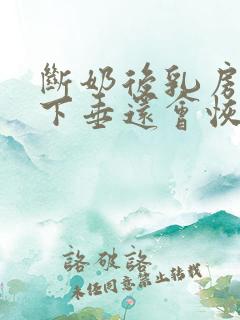 斷奶後乳房
下垂還會恢
詻破詻
未经同意禁止转载